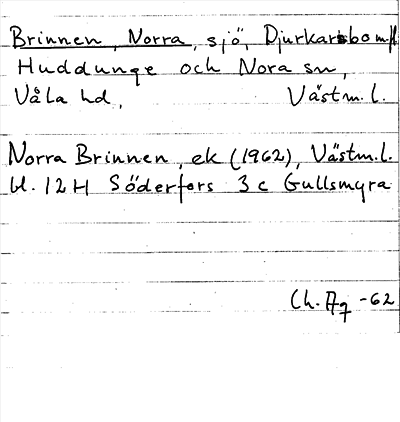 Brinnen, Norra, sjö, Djurkarsbo m fl
Huddunge och Nora sn,
Våla hd, Västm.l.
Norra Brinnen, ek (1962), Västm.l.
bl. 12H Söderfors 3 c Gullsmyra
Ch. Ag -62